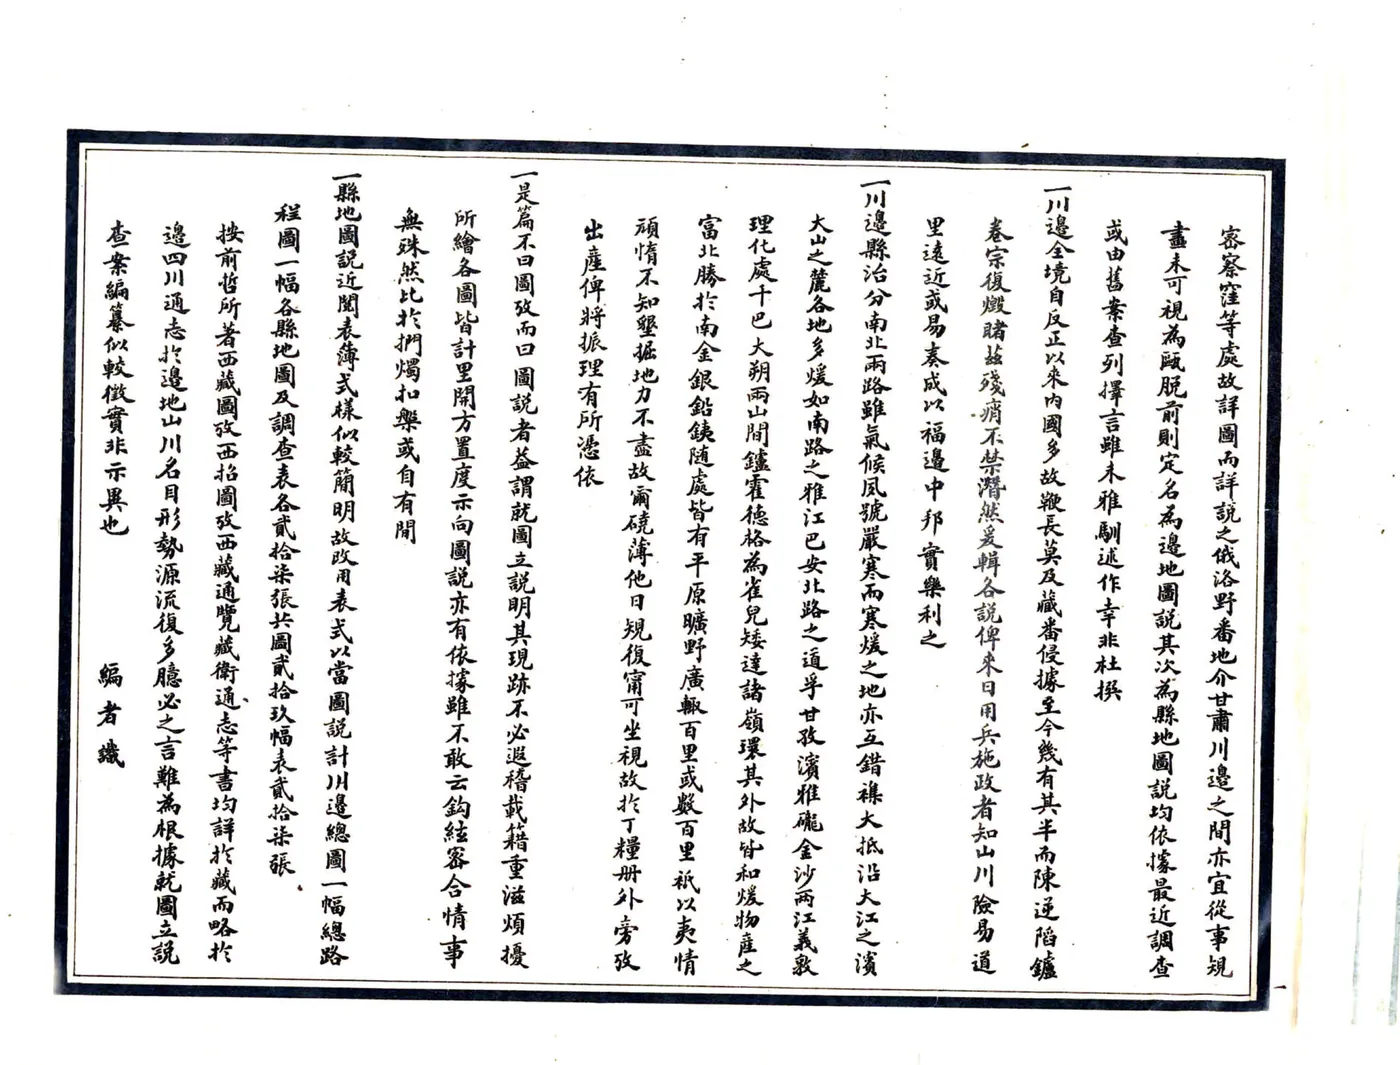 密察窪等處故詳圖而詳說之俄洛野番地介甘肅川邊之間亦宜從事規
畫未可視為甌脫前則定名為邊地圖說其次為縣地圖說均依據最近調查
或由舊案查列擇言雖未雅馴述作幸非杜撰
一川邊全境自反正以來內國多故鞭長莫及藏番侵據至今幾有其半而陳逆陷鑪
卷宗復燬睹茲殘瘠不禁潛然爰輯各說俾來日用兵施政者知山川險易道
里遠近或易奏成以福邊中邦實樂利之
一川邊縣治分南北兩路雖氣候夙號嚴寒而寒煖之地亦互錯襍大抵沿大江之濱
大山之麓各地多煖如南路之雅江巴安北路之道孚甘孜濱雅礲金沙兩江義敦
理化處千巴大朔兩山間鑪霍德格為雀兒矮達諸嶺環其外故皆和煖物產之
富北勝於南金銀鉛銕随處皆有平原曠野廣輙百里或數百里祇以夷情
頑惰不知墾掘地力不盡故爾磽薄他日規復甯可坐視故於丁糧册外旁攷
出產俾將振理有所憑依
一是篇不曰圖攷而曰圖說者益謂就圖立說明其現跡不必遐稽載籍重滋煩擾
所繪各圖皆計里開方置度示向圖說亦有依據雖不敢云鈎絃密合情事
無殊然比於捫燭扣槃或自有間
一縣地圖說近閱表簿式樣似較簡明故改用表式以當圖說計川邊總圖一幅總路
程圖一幅各縣地圖及調查表各貳拾柒張共圖貳拾玖幅表貳拾柒張
按前哲所著西藏圖攷西招圖攷西藏通覽藏衛通志等書均詳於藏而略於
邊四川通志於邊地山川名目形勢源流復多臆必之言難為根據就圖立說
查案編纂似較徵實非示異也
編者識